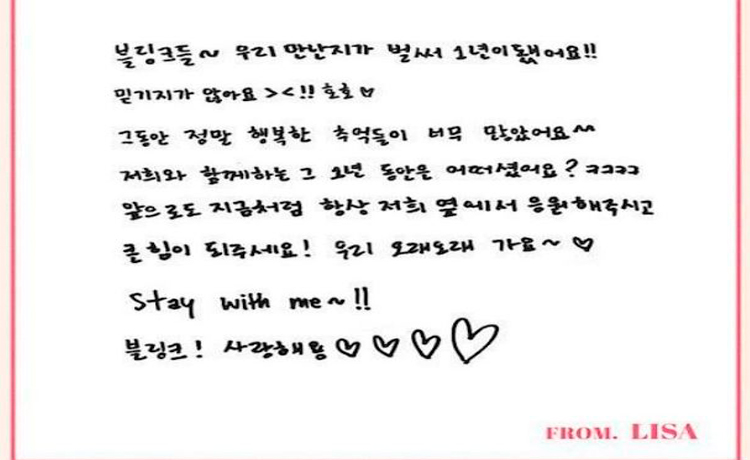 블링크들~ 우리 만난지가 벌써 1년이 됐어요!!
믿기지가 않아요 >< !! 호호 ♡
그동안 정말 행복한 추억들이 너무 많았어요^^
저희와 함께하는 그 1년 동안은 어떠셨어요? ㅋㅋㅋㅋ
앞으로도 지금처럼 항상 저희 옆에서 응원해주시고
큰힘이 되주세요! 우리 오래오래 가요~ ♡
Stay with me~!!
블링크! 사랑해용 ♡ ♡ ♡ ♡
FROM. LISA